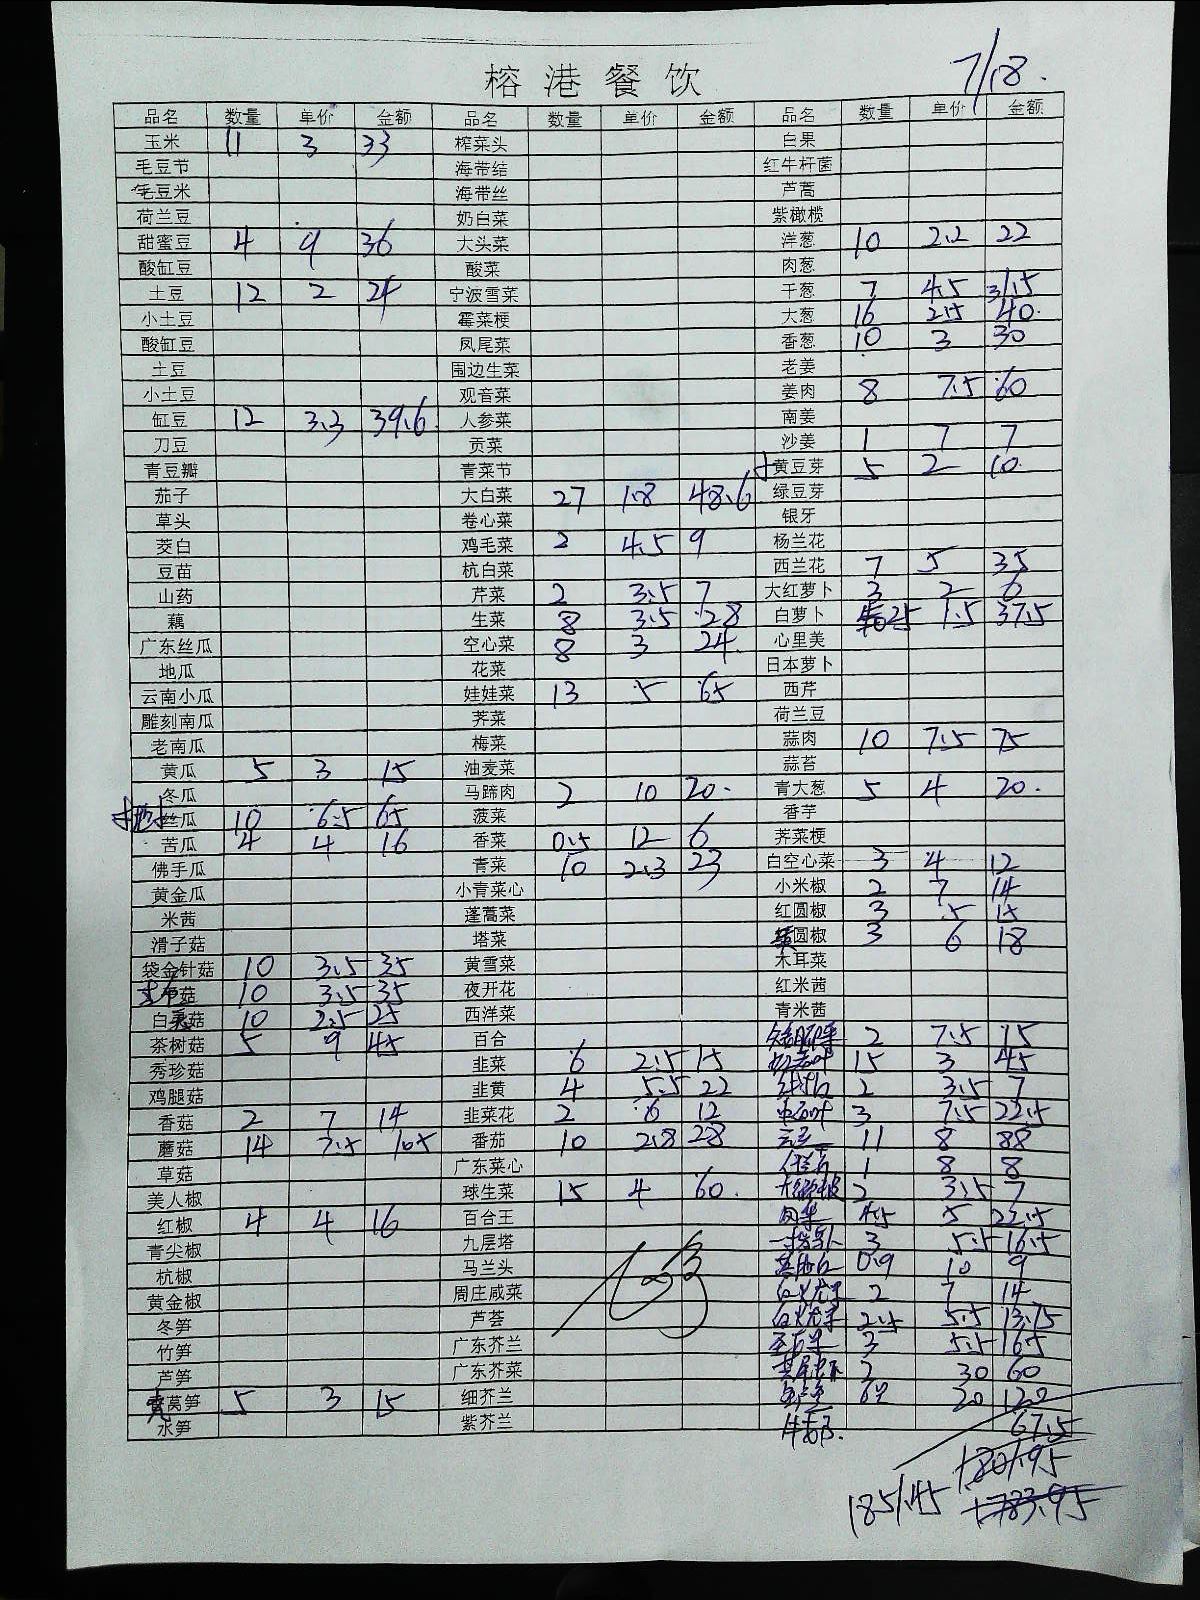 榕港餐饮
7/18.
品名 数量 单价 金额 品名 数量 单价 金额 品名 数量 单价 金额
玉米 11 3 33 榨菜头 白果
毛豆节 海带结 红牛杆菌
毛豆米 海带丝 芦蒿
荷兰豆 奶白菜 紫橄榄
甜蜜豆 4 9 36 大头菜 洋葱 10 2.2 22
酸缸豆 酸菜 肉葱
土豆 12 2 24 宁波雪菜 干葱 7 4.5 31.5
小土豆 霉菜梗 大葱 16 2.5 40.
酸缸豆 凤尾菜 香葱 10 3 30
土豆 围边生菜 老姜
小土豆 观音菜 姜肉 8 7.5 60
缸豆 12 3.3 39.6 人参菜 南姜
刀豆 贡菜 沙姜 1 7 7
青豆瓣 青菜节 黄豆芽 5 2 10.
茄子 大白菜 27 1.8 48.6 绿豆芽
草头 卷心菜 银牙
茭白 鸡毛菜 2 4.5 9 杨兰花
豆苗 杭白菜 西兰花 7 5 35
山药 芹菜 2 3.5 7 大红萝卜 3 2 6
藕 生菜 8 3.5 28 白萝卜 25 1.5 37.5
广东丝瓜 空心菜 8 3 24. 心里美
地瓜 花菜 日本萝卜
云南小瓜 娃娃菜 13 5 65 西芹
雕刻南瓜 荠菜 荷兰豆
老南瓜 梅菜 蒜肉 10 7.5 75
黄瓜 5 3 15 油麦菜 蒜苔
冬瓜 马蹄肉 2 10 20. 青大葱 5 4 20.
丝瓜 10 6.5 65 菠菜 香芋
苦瓜 4 4 16 香菜 0.5 12 6 荠菜梗
佛手瓜 青菜 10 2.3 23 白空心菜 3 4 12
黄金瓜 小青菜心 小米椒 2 7 14
米茜 蓬蒿菜 红圆椒 3 5 15
滑子菇 塔菜 圆椒 3 6 18
袋金针菇 10 3.5 35 黄雪菜 木耳菜
菇 10 3.5 35 夜开花 红米茜
白灵菇 10 2.5 25 西洋菜 青米茜
茶树菇 5 9 45 百合 2 7.5 15
秀珍菇 韭菜 6 2.5 15 15 3 45
鸡腿菇 韭黄 4 5.5 22 2 3.5 7
香菇 2 7 14 韭菜花 2 6 12 3 7.5 22.5
蘑菇 14 7.5 105 番茄 10 2.8 28 11 8 88
草菇 广东菜心 1 8 8
美人椒 球生菜 15 4 60. 2 3.5 7
红椒 4 4 16 百合王 4.5 5 22.5
青尖椒 九层塔 3 5.5 16.5
杭椒 马兰头 0.9 10 9
黄金椒 周庄咸菜 2 7 14
冬笋 芦荟 2.5 5.5 13.75
竹笋 广东芥兰 3 5.5 16.5
芦笋 广东芥菜 2 30 60
莴笋 5 3 15 细芥兰 6 20 120
水笋 紫芥兰 67.5
1801.95
1851.45 1783.95